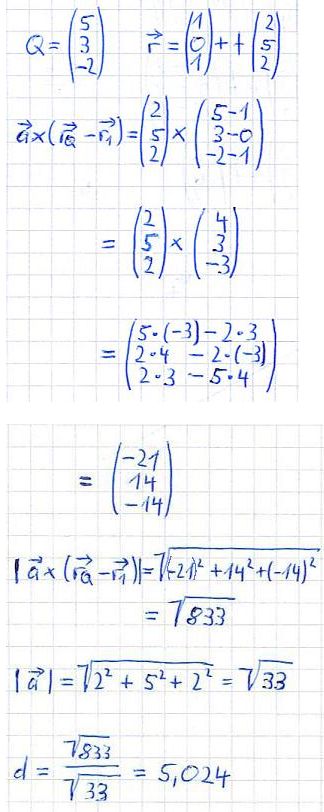 Q = (5 3 -2) r⃗ = (1 0 1) + t (2 5 2)
a⃗ × (r⃗Q - r⃗1) = (2 5 2) × (5-1 3-0 -2-1)
= (2 5 2) × (4 3 -3)
= (5·(-3) - 2·3 2·4 - 2·(-3) 2·3 - 5·4)
= (-21 14 -14)
|a⃗ × (r⃗Q - r⃗1)| = √((-21)² + 14² + (-14)²)
= √833
|a⃗| = √(2² + 5² + 2²) = √33
d = √833 / √33 = 5,024